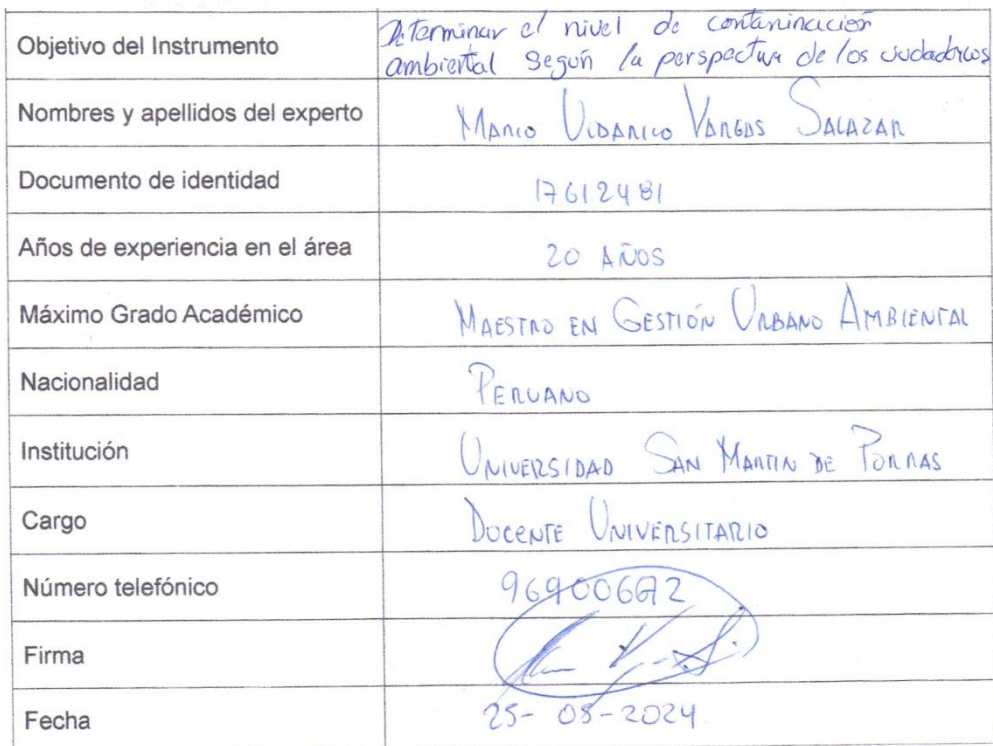 Objetivo del Instrumento
Determinar el nivel de contaminación
ambiental según la perspectiva de los ciudadanos
Nombres y apellidos del experto
MARIO UIDARICO VARGAS SALAZAR
Documento de identidad
17612481
Años de experiencia en el área
20 AÑOS
Máximo Grado Académico
MAESTRO EN GESTIÓN URBANO AMBIENTAL
Nacionalidad
PERUANO
Institución
UNIVERSIDAD SAN MARTIN DE PORRAS
Cargo
DOCENTE UNIVERSITARIO
Número telefónico
Firma
Fecha
25-05-2024